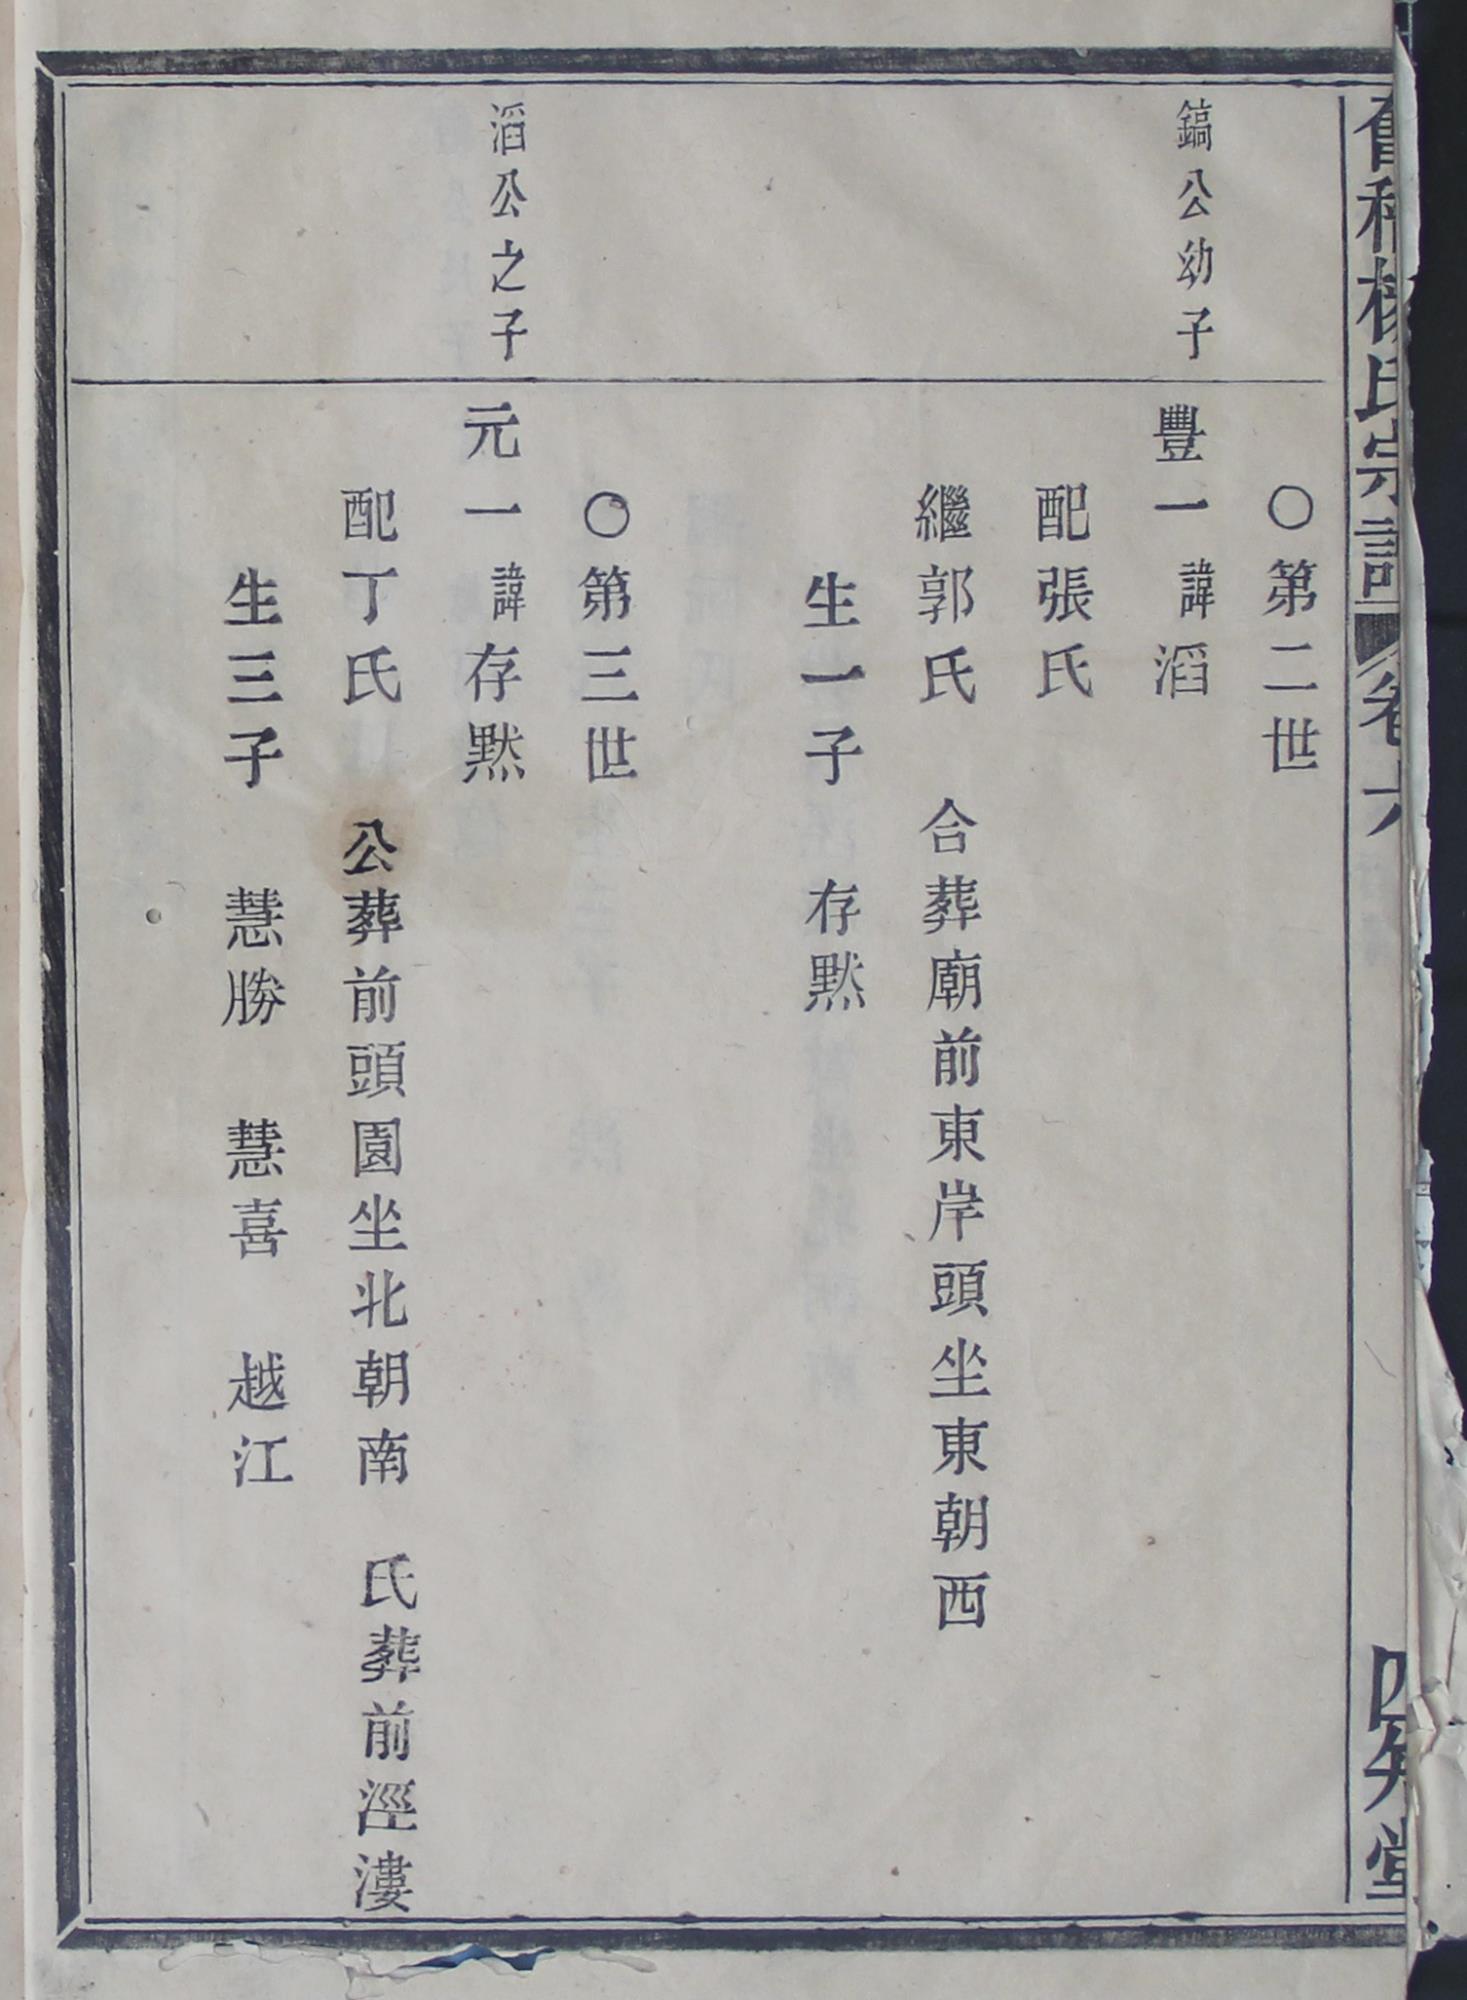 舊種楊氏宗譜 卷六 四知堂
○第二世
鎬公幼子 豐一 諱滔
配張氏
繼郭氏 合葬廟前東岸頭坐東朝西
生一子 存默
○第三世
滔公之子 元一 諱存默
配丁氏 公葬前頭園坐北朝南 氏葬前涇漊
生三子 慧勝 慧喜 越江